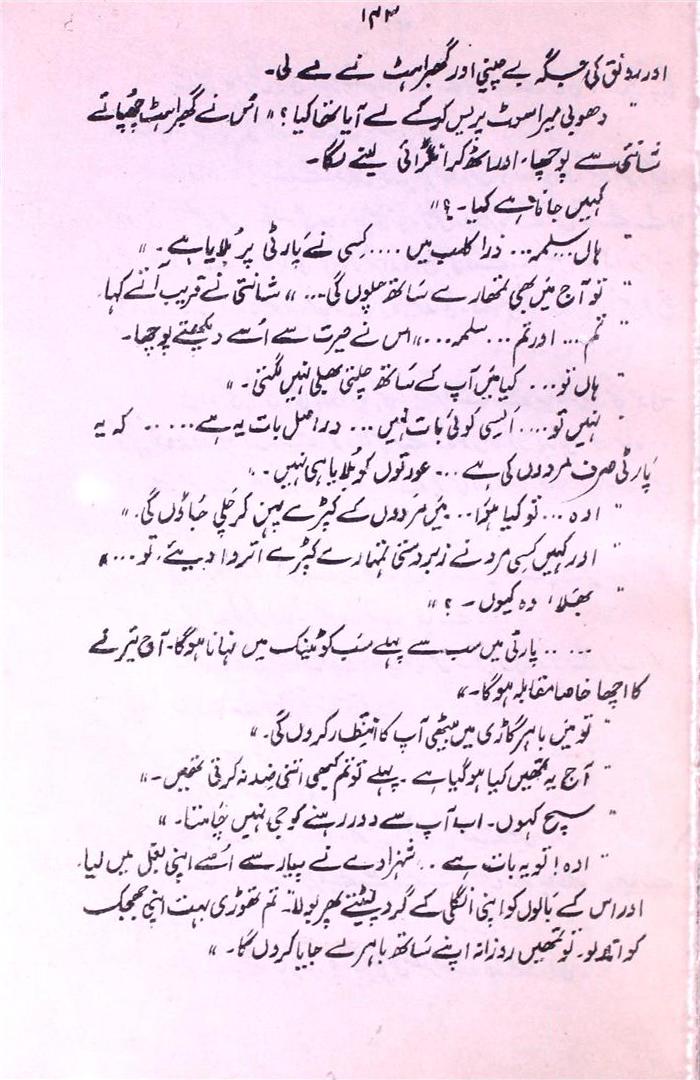 ۱۴۳
اور رونق کی جگہ بے چینی اور گھبراہٹ نے لے لی۔
" دھوبی میرا سوٹ پریس کرکے لے آیا تھا کیا؟" اُس نے گھبراہٹ چھپاتے
شانتی سے پوچھا، اور اٹھ کر انگڑائی لینے لگا۔
کہیں جانا ہے کیا۔؟"
" ہاں... سلمہ... ذرا کلب میں .... کسی نے پارٹی پر بُلایا ہے۔"
" تو آج میں بھی تمھارے سَاتھ چلوں گی...." شانتی نے قریب آتے کہا۔
" تم... اور تم... سلمہ..." اس نے حیرت سے اُسے دیکھتے پوچھا۔
" ہاں تو... کیا میں آپ کے سَاتھ چلتی بھلی نہیں لگتی۔"
" نہیں تو.... اَیسی کوئی بات نہیں... دراصل بات یہ ہے..... کہ یہ
پارٹی صرف مَردوں کی ہے... عورتوں کو بُلایا ہی نہیں۔"
" اوہ... تو کیا ہوُا.. میَں مَردوں کے کپڑے پہن کر چَلی جَاؤں گی۔"
" اور کہیں کِسی مرد نے زبردستی تمہارے کپڑے اتروا دیئے، تو...."
" بھَلا، وہ کیوں۔؟"
..... پارٹی میں سب سے پہلے سَب کو ٹینک میں نہانا ہوگا۔ آج تیرنے
کا اچھا خاصا مقابلہ ہوگا۔"
" تو میَں باہر گاڑی میں بیٹھی آپ کا اِنتظار کروں گی۔"
" آج یہ تمھیں کیا ہو گیا ہے۔ پہلے تو تم کبھی اتنی ضد نہ کرتی تھیں۔"
" سچ کہوں۔ اب آپ سے دور رہنے کو جی نہیں چَاہتا۔"
" اوہ! تو یہ بات ہے.. شہزادے نے پیار سے اُسے اپنی بغل میں لیا۔
اور اس کے بَالوں کو اپنی انگلی کے گرد لپیٹتے پھر بولا۔ تم تھوڑی بہت اپنی جھجک
کو اتارلو۔ تو تمھیں روزانہ اپنے سَاتھ باہر لے جایا کروں گا۔"